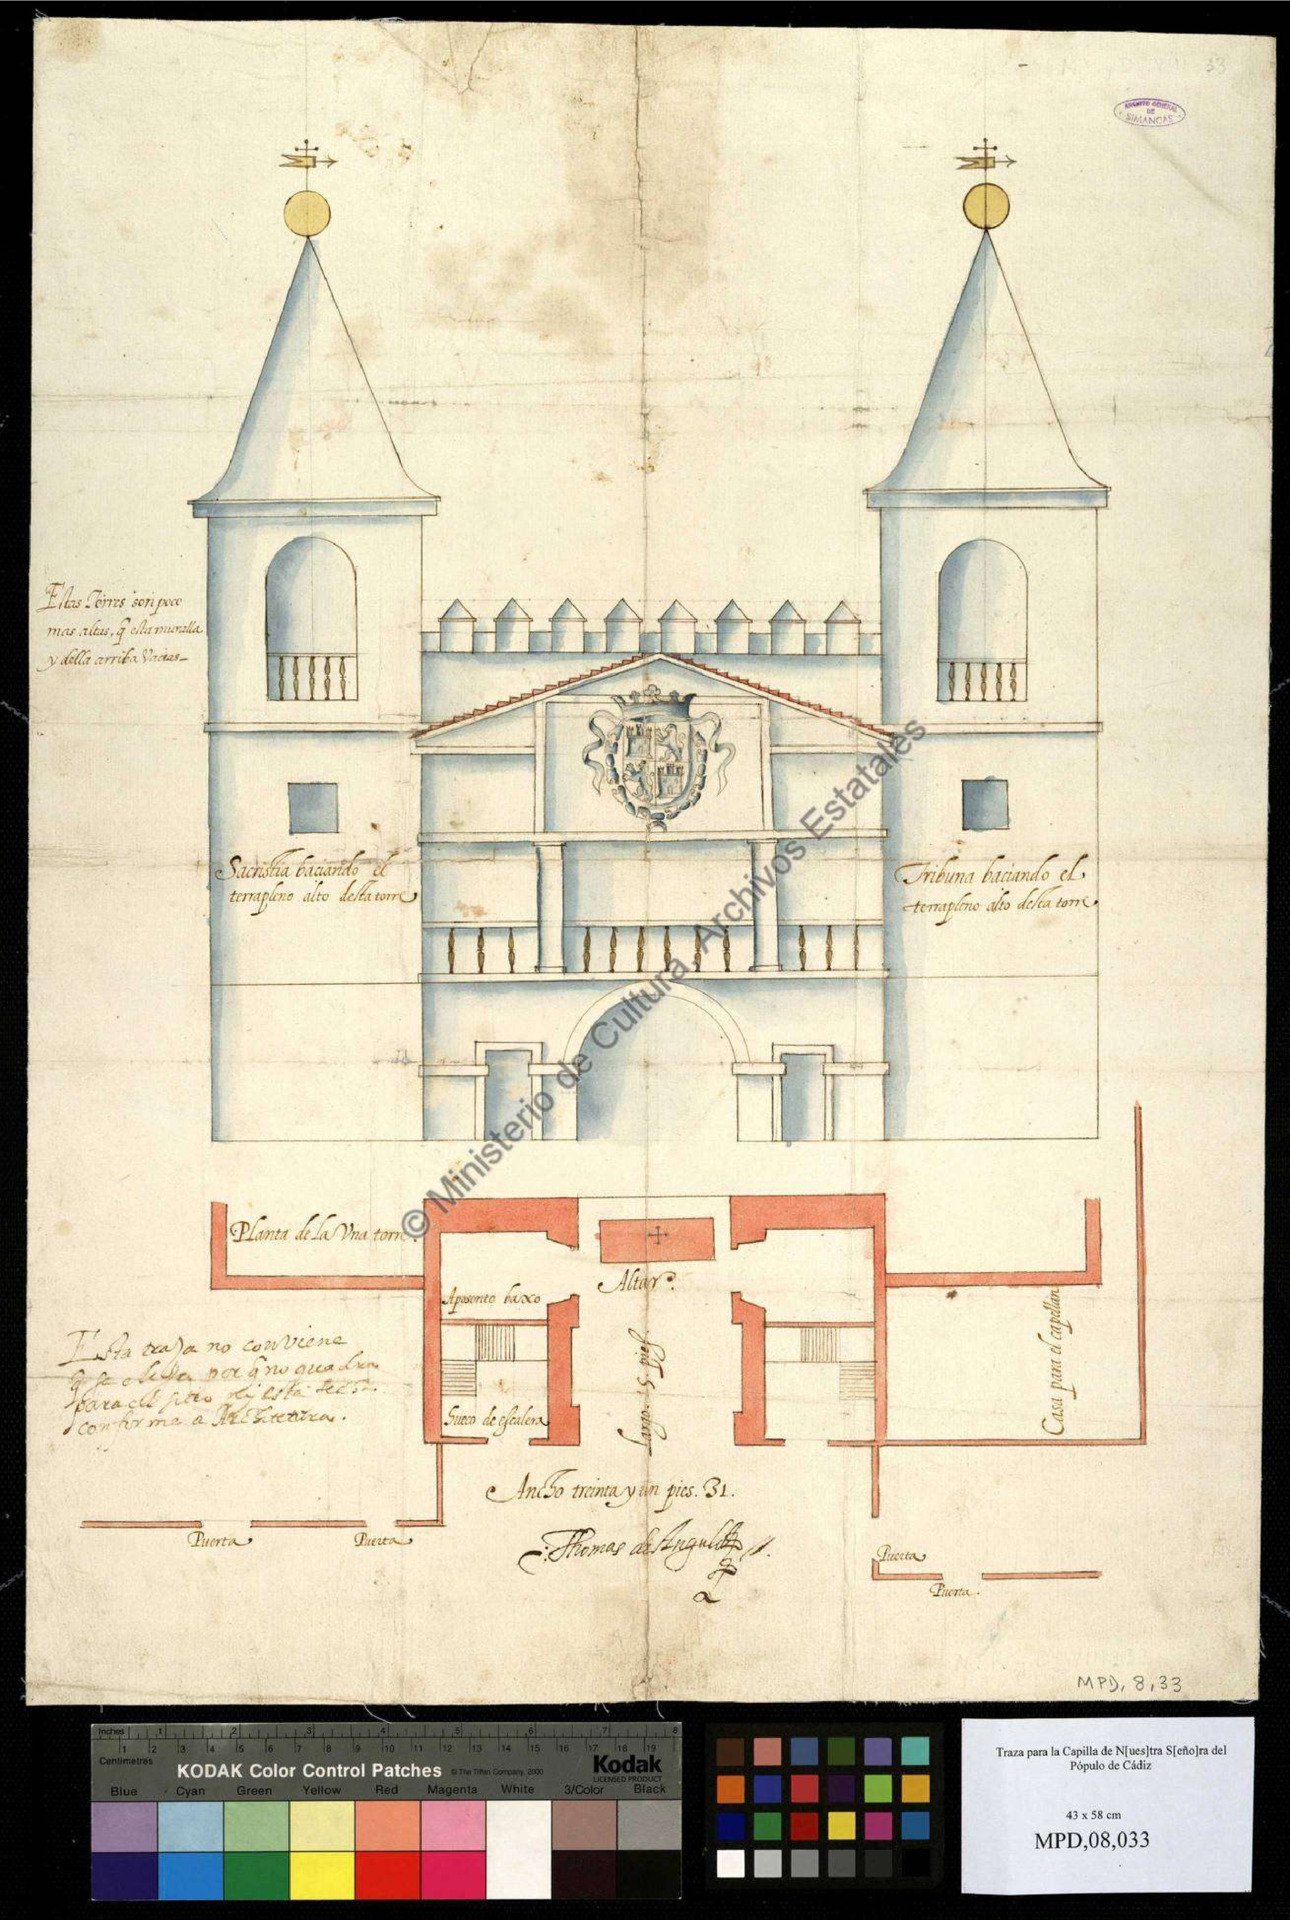 33
ARCHIVO GENERAL
DE
SIMANCAS
Estas Torres son poco
mas altas, q̃ esta muralla
y della arriba Vacias
Sacristia baciando el
terrapleno alto desta torre
Tribuna baciando el
terrapleno alto desta torre
© Ministerio de Cultura, Archivos Estatales
Planta de la Vna torre.
Altar.
Aposento baxo
Esta traza no conviene
q̃ se por q̃ no quadra
para el sitio
conforme a
largo. 45. pies.
Casa para el capellan
Sueco de escalera
Ancho treinta y un pies. 31.
Thomas de Angulo
Puerta
Puerta
Puerta
Puerta.
MPD, 8,33
Inches 1 2 3 4 5 6 7 8
Centimetres 1 2 3 4 5 6 7 8 9 10 11 12 13 14 15 16 17 18 19
KODAK Color Control Patches © The Tiffen Company, 2000 Kodak
LICENSED PRODUCT
Blue Cyan Green Yellow Red Magenta White 3/Color Black
Traza para la Capilla de N[ues]tra S[eño]ra del
Pópulo de Cádiz
43 x 58 cm
MPD,08,033